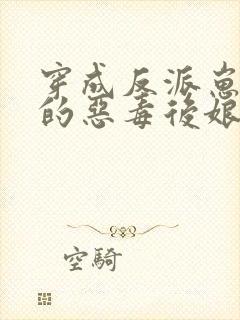 穿成反派崽
的惡毒後娘
空騎